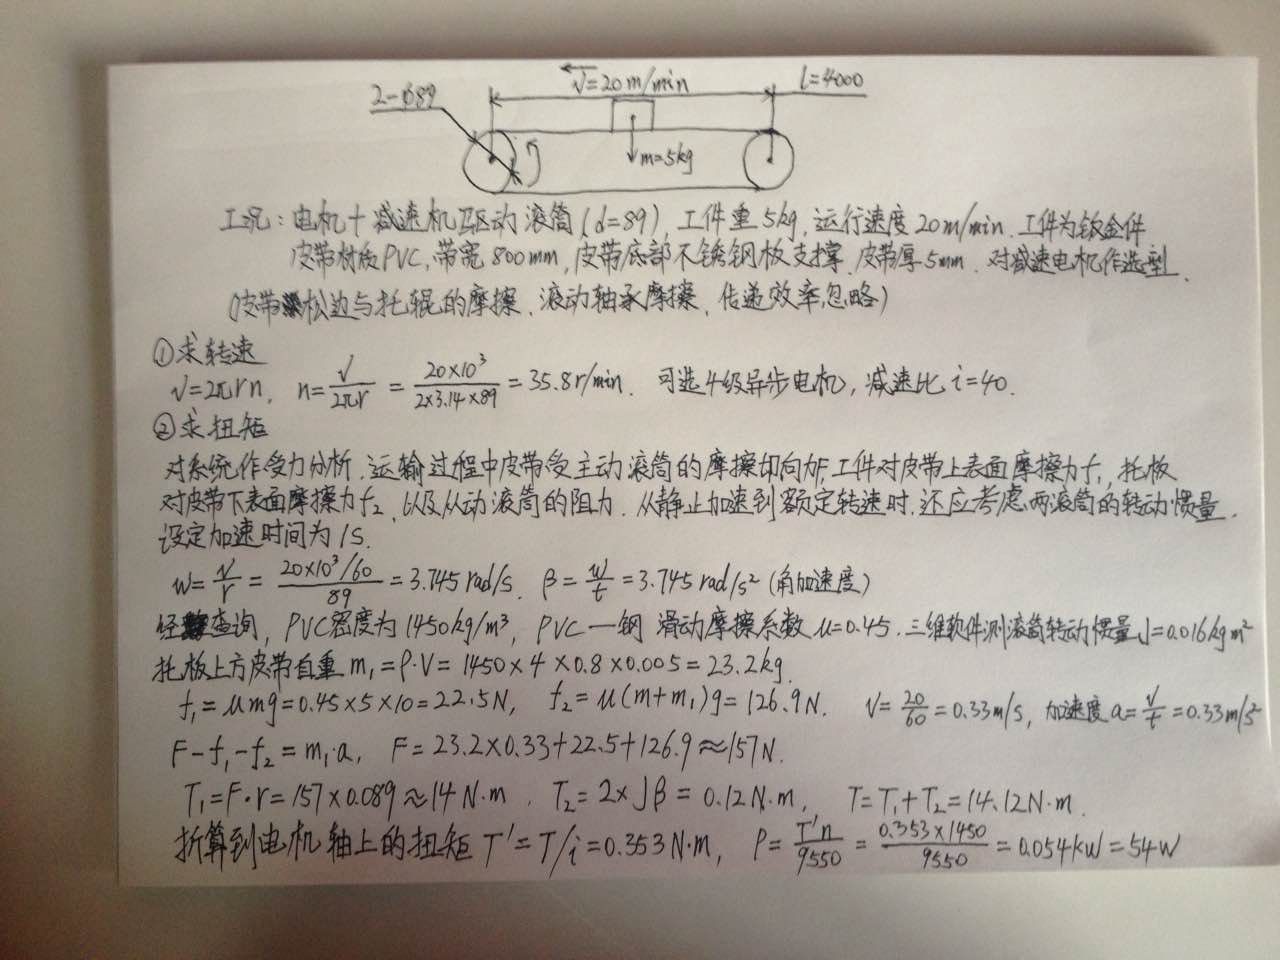 2-φ89
v=20m/min
l=4000
m=5kg
工况：电机+减速机驱动滚筒(d=89)，工件重5kg，运行速度20m/min，工件为钣金件
皮带材质PVC，带宽800mm，皮带底部不锈钢板支撑，皮带厚5mm，对减速电机作选型．
(皮带松边与托辊的摩擦、滚动轴承摩擦、传递效率忽略)
①求转速
v=2πrn, n=v/2πr = 20×10³/2×3.14×89 = 35.8r/min. 可选4级异步电机，减速比i=40.
②求扭矩
对系统作受力分析，运输过程中皮带受主动滚筒的摩擦切向力F，工件对皮带上表面摩擦力f₁，托板
对皮带下表面摩擦力f₂，以及从动滚筒的阻力．从静止加速到额定转速时，还应考虑两滚筒的转动惯量．
设定加速时间为1s．
w=v/r = 20×10³/60/89 = 3.745 rad/s. β=w/t = 3.745 rad/s² (角加速度)
经查询，PVC密度为1450kg/m³，PVC—钢 滑动摩擦系数μ=0.45．三维软件测滚筒转动惯量J=0.016kg·m²
托板上方皮带自重m₁=ρ·V=1450×4×0.8×0.005=23.2kg.
f₁=μmg=0.45×5×10=22.5N, f₂=μ(m+m₁)g=126.9N. v=20/60=0.33m/s, 加速度a=v/t=0.33m/s²
F-f₁-f₂=m₁·a, F=23.2×0.33+22.5+126.9≈157N.
T₁=F·r=157×0.089≈14N·m. T₂=2×Jβ=0.12N·m, T=T₁+T₂=14.12N·m.
折算到电机轴上的扭矩T'=T/i=0.353N·m, P=T'n/9550 = 0.353×1450/9550 = 0.054kW=54W